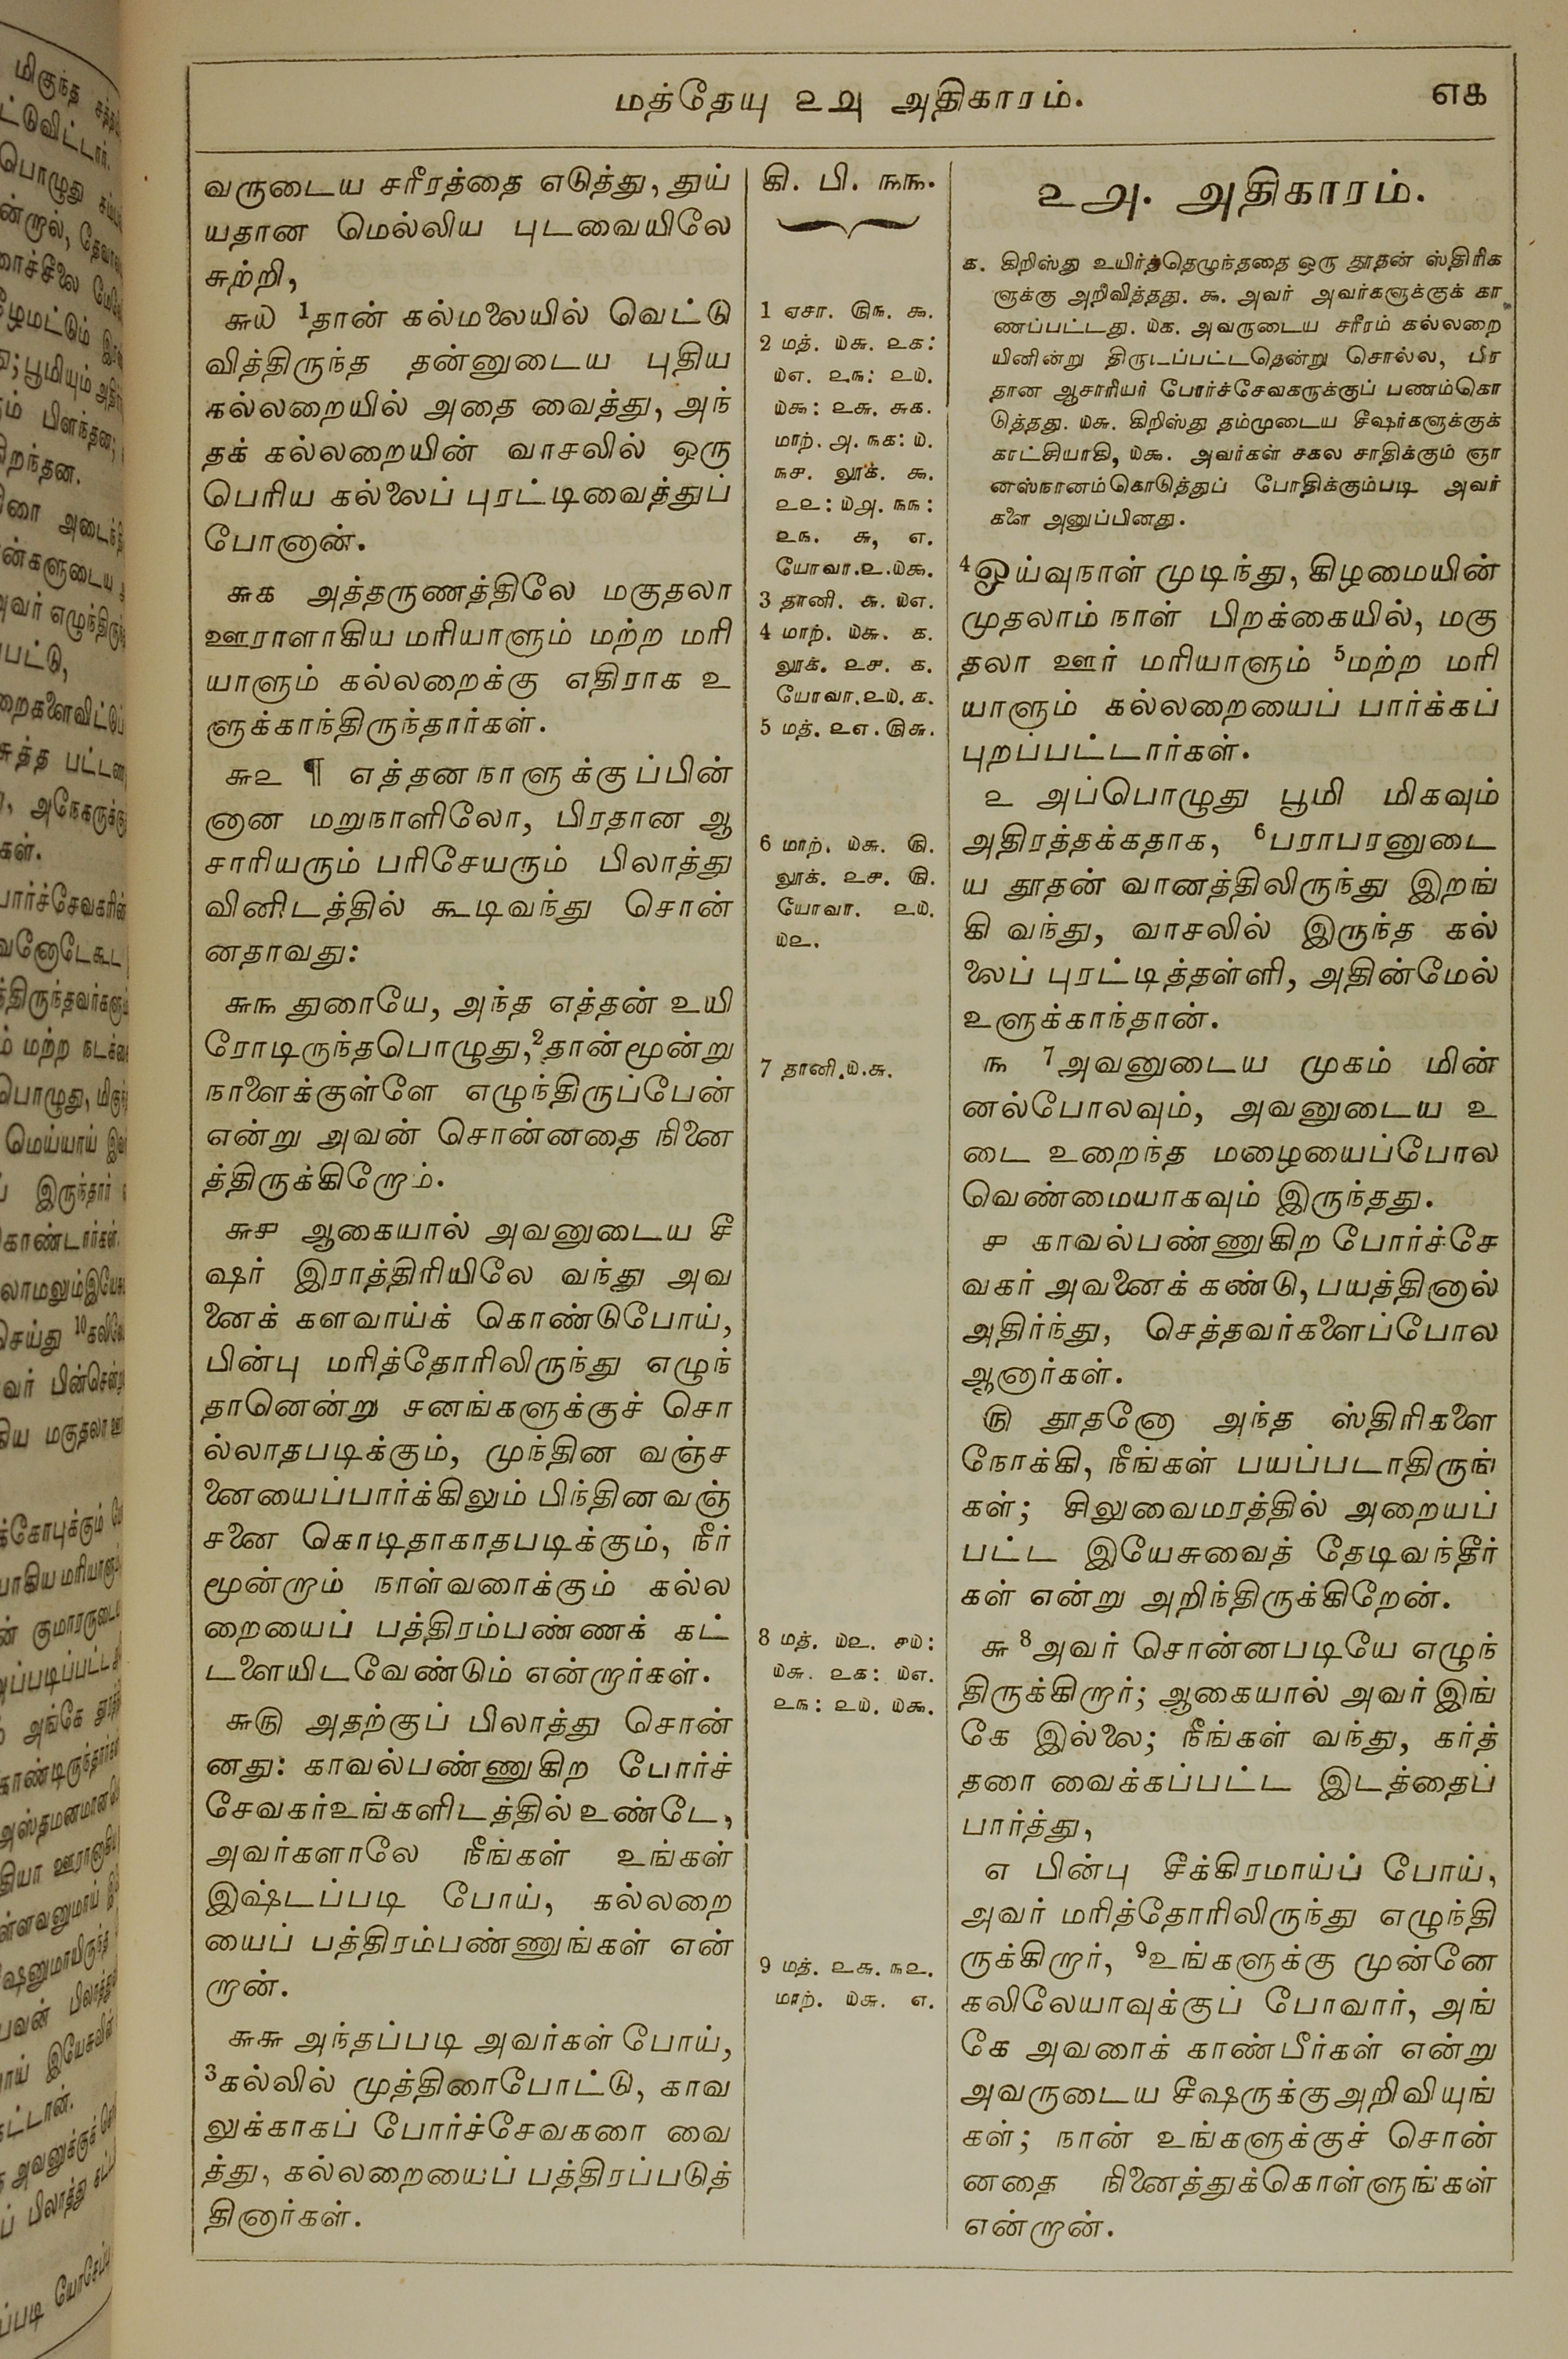 மத்தேயு ௨௮ அதிகாரம்.
௭௧
வருடைய சரீரத்தை எடுத்து, துய்
யதான மெல்லிய புடவையிலே
சுற்றி,
௬௰ 1தான் கல்மலையில் வெட்டு
வித்திருந்த தன்னுடைய புதிய
கல்லறையில் அதை வைத்து, அந்
தக் கல்லறையின் வாசலில் ஒரு
பெரிய கல்லைப் புரட்டிவைத்துப்
போனான்.
௬௧ அத்தருணத்திலே மகுதலா
ஊராளாகிய மரியாளும் மற்ற மரி
யாளும் கல்லறைக்கு எதிராக உ
ளுக்காந்திருந்தார்கள்.
௬௨ ¶ எத்தனநாளுக்குப்பின்
னான மறுநாளிலோ, பிரதான ஆ
சாரியரும் பரிசேயரும் பிலாத்து
வினிடத்தில் கூடிவந்து சொன்
னதாவது:
௬௩ துரையே, அந்த எத்தன் உயி
ரோடிருந்தபொழுது,2தான்மூன்று
நாளைக்குள்ளே எழுந்திருப்பேன்
என்று அவன் சொன்னதை நினை
த்திருக்கிறோம்.
௬௪ ஆகையால் அவனுடைய சீ
ஷர் இராத்திரியிலே வந்து அவ
னைக் களவாய்க் கொண்டுபோய்,
பின்பு மரித்தோரிலிருந்து எழுந்
தானென்று சனங்களுக்குச் சொ
ல்லாதபடிக்கும், முந்தின வஞ்ச
னையைப்பார்க்கிலும் பிந்தினவஞ்
சனை கொடிதாகாதபடிக்கும், நீர்
மூன்றாம் நாள்வரைக்கும் கல்ல
றையைப் பத்திரம்பண்ணக் கட்
டளையிடவேண்டும் என்றார்கள்.
௬௫ அதற்குப் பிலாத்து சொன்
னது: காவல்பண்ணுகிற போர்ச்
சேவகர்உங்களிடத்தில் உண்டே,
அவர்களாலே நீங்கள் உங்கள்
இஷ்டப்படி போய், கல்லறை
யைப் பத்திரம்பண்ணுங்கள் என்
றான்.
௬௬ அந்தப்படி அவர்கள் போய்,
3கல்லில் முத்திரைபோட்டு, காவ
லுக்காகப் போர்ச்சேவகரை வை
த்து, கல்லறையைப் பத்திரப்படுத்
தினார்கள்.
கி. பி. ௩௩.
1 ஏசா. ௫௩. ௯.
2 மத். ௰௬. ௨௧:
௰௭. ௨௩: ௨௰.
௰௯: ௨௬. ௬௧.
மாற். ௮. ௩௧: ௰.
௩௪. லூக். ௯.
௨௨: ௰௮. ௩௩:
௨௩. ௬, ௭.
யோவா.௨.௰௯.
3 தானி. ௬. ௰௭.
4 மாற். ௰௬. ௧.
லூக். ௨௪. ௧.
யோவா.௨௰.௧.
5 மத். ௨௭.௫௬.
6 மாற். ௰௬. ௫.
லூக். ௨௪. ௫.
யோவா. ௨௰.
௰௨.
7 தானி.௰.௬.
8 மத். ௰௨. ௪௰:
௰௬. ௨௧: ௰௭.
௨௩: ௨௰. ௰௯.
9 மத். ௨௬. ௩௨.
மாற். ௰௬. ௭.
௨௮. அதிகாரம்.
௧. கிறிஸ்து உயிர்த்தெழுந்ததை ஒரு தூதன் ஸ்திரிக
ளுக்கு அறிவித்தது. ௯. அவர் அவர்களுக்குக் கா
ணப்பட்டது. ௰௧. அவருடைய சரீரம் கல்லறை
யினின்று திருடப்பட்டதென்று சொல்ல, பிர
தான ஆசாரியர் போர்ச்சேவகருக்குப் பணம்கொ
டுத்தது. ௰௬. கிறிஸ்து தம்முடைய சீஷர்களுக்குக்
காட்சியாகி, ௰௯. அவர்கள் சகல சாதிக்கும் ஞா
னஸ்நானம்கொடுத்துப் போதிக்கும்படி அவர்
களை அனுப்பினது.
4ஓய்வுநாள் முடிந்து, கிழமையின்
முதலாம் நாள் பிறக்கையில், மகு
தலா ஊர் மரியாளும் 5மற்ற மரி
யாளும் கல்லறையைப் பார்க்கப்
புறப்பட்டார்கள்.
௨ அப்பொழுது பூமி மிகவும்
அதிரத்தக்கதாக, 6பராபரனுடை
ய தூதன் வானத்திலிருந்து இறங்
கி வந்து, வாசலில் இருந்த கல்
லைப் புரட்டித்தள்ளி, அதின்மேல்
உளுக்காந்தான்.
௩ 7அவனுடைய முகம் மின்
னல்போலவும், அவனுடைய உ
டை உறைந்த மழையைப்போல
வெண்மையாகவும் இருந்தது.
௪ காவல்பண்ணுகிற போர்ச்சே
வகர் அவனைக் கண்டு, பயத்தினால்
அதிர்ந்து, செத்தவர்களைப்போல
ஆனார்கள்.
௫ தூதனோ அந்த ஸ்திரிகளை
நோக்கி, நீங்கள் பயப்படாதிருங்
கள்; சிலுவைமரத்தில் அறையப்
பட்ட இயேசுவைத் தேடிவந்தீர்
கள் என்று அறிந்திருக்கிறேன்.
௬ 8அவர் சொன்னபடியே எழுந்
திருக்கிறார்; ஆகையால் அவர் இங்
கே இல்லை; நீங்கள் வந்து, கர்த்
தரை வைக்கப்பட்ட இடத்தைப்
பார்த்து,
௭ பின்பு சீக்கிரமாய்ப் போய்,
அவர் மரித்தோரிலிருந்து எழுந்தி
ருக்கிறார், 9உங்களுக்கு முன்னே
கலிலேயாவுக்குப் போவார், அங்
கே அவரைக் காண்பீர்கள் என்று
அவருடைய சீஷருக்குஅறிவியுங்
கள்; நான் உங்களுக்குச் சொன்
னதை நினைத்துக்கொள்ளுங்கள்
என்றான்.